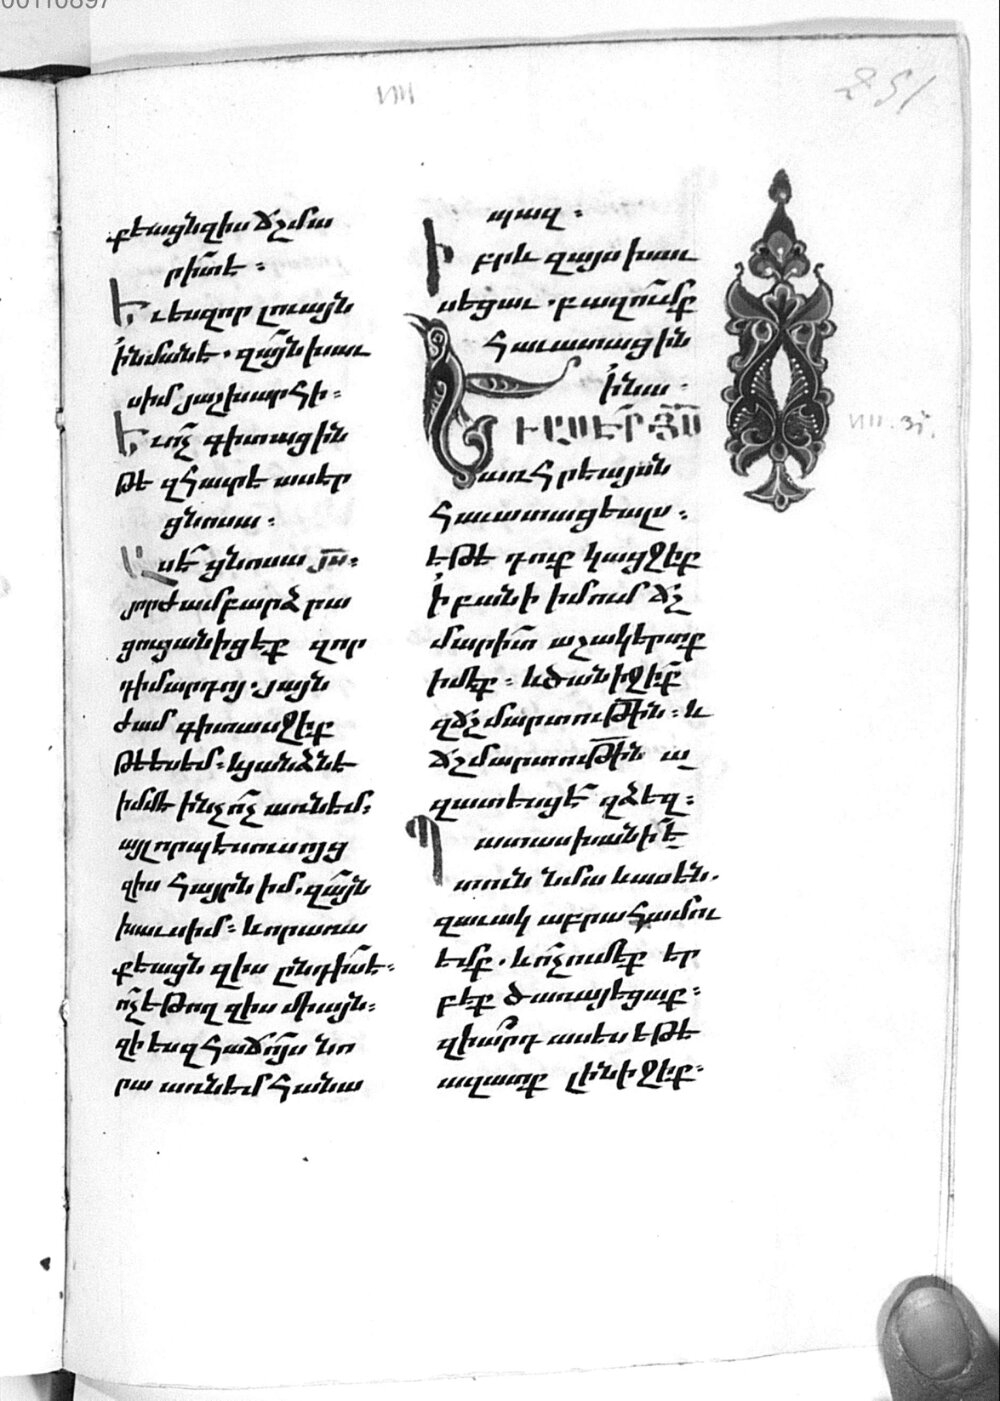 քեացնզիս ճշմա
րիտէ ։
Եւեսզոր լուայն
ի՛նմանէ · զայն խաւ
սիմ յաշխարհի ։
Եւոչ գիտացին
թէ զհաւրէ ասէր
ցնոսա ։
Ասէ ցնոսա յս ։
յորժամ բարձրա
ցուցանիցէք զոր
դիմարդոյ · յայն
ժամ գիտասջիք
թէեսեմ ։ եւյանձնէ
իմմէ ինչոչ առնեմ ։
այլորպէսուսոյց
զիս հայրն իմ · զայն
խաւսիմ ։ եւորառա
քեացն զիս ընդիմէ ։
ոչեթող զիս միայն ։
զի եսզհաճոյս նո
րա առնեմ հանա
պազ ։
Իբրեւ զայս խաւ
սեցաւ · բազումք
հաւատացին
ի՛նա ·
ԵՒ ԱՍԷՐ ՅՍ
առհրեայսն
հաւատացեալս ։
եթէ դուք կայջիք
ի՛ բանի իմում ճշ
մարիտ աշակերտք
իմէք ։ եւծանիջիք
զճշմարտութին ։ և
ճշմարտութին ա
զատեսցէ զձեզ ։
Պատասխանի ե
տուն նմա եւասեն ·
զաւակ աբրահամու
եմք · եւոչումեք եր
բեք ծառայեցաք ։
զիարդ ասես եթէ
ազատք լինիջիք ։
251